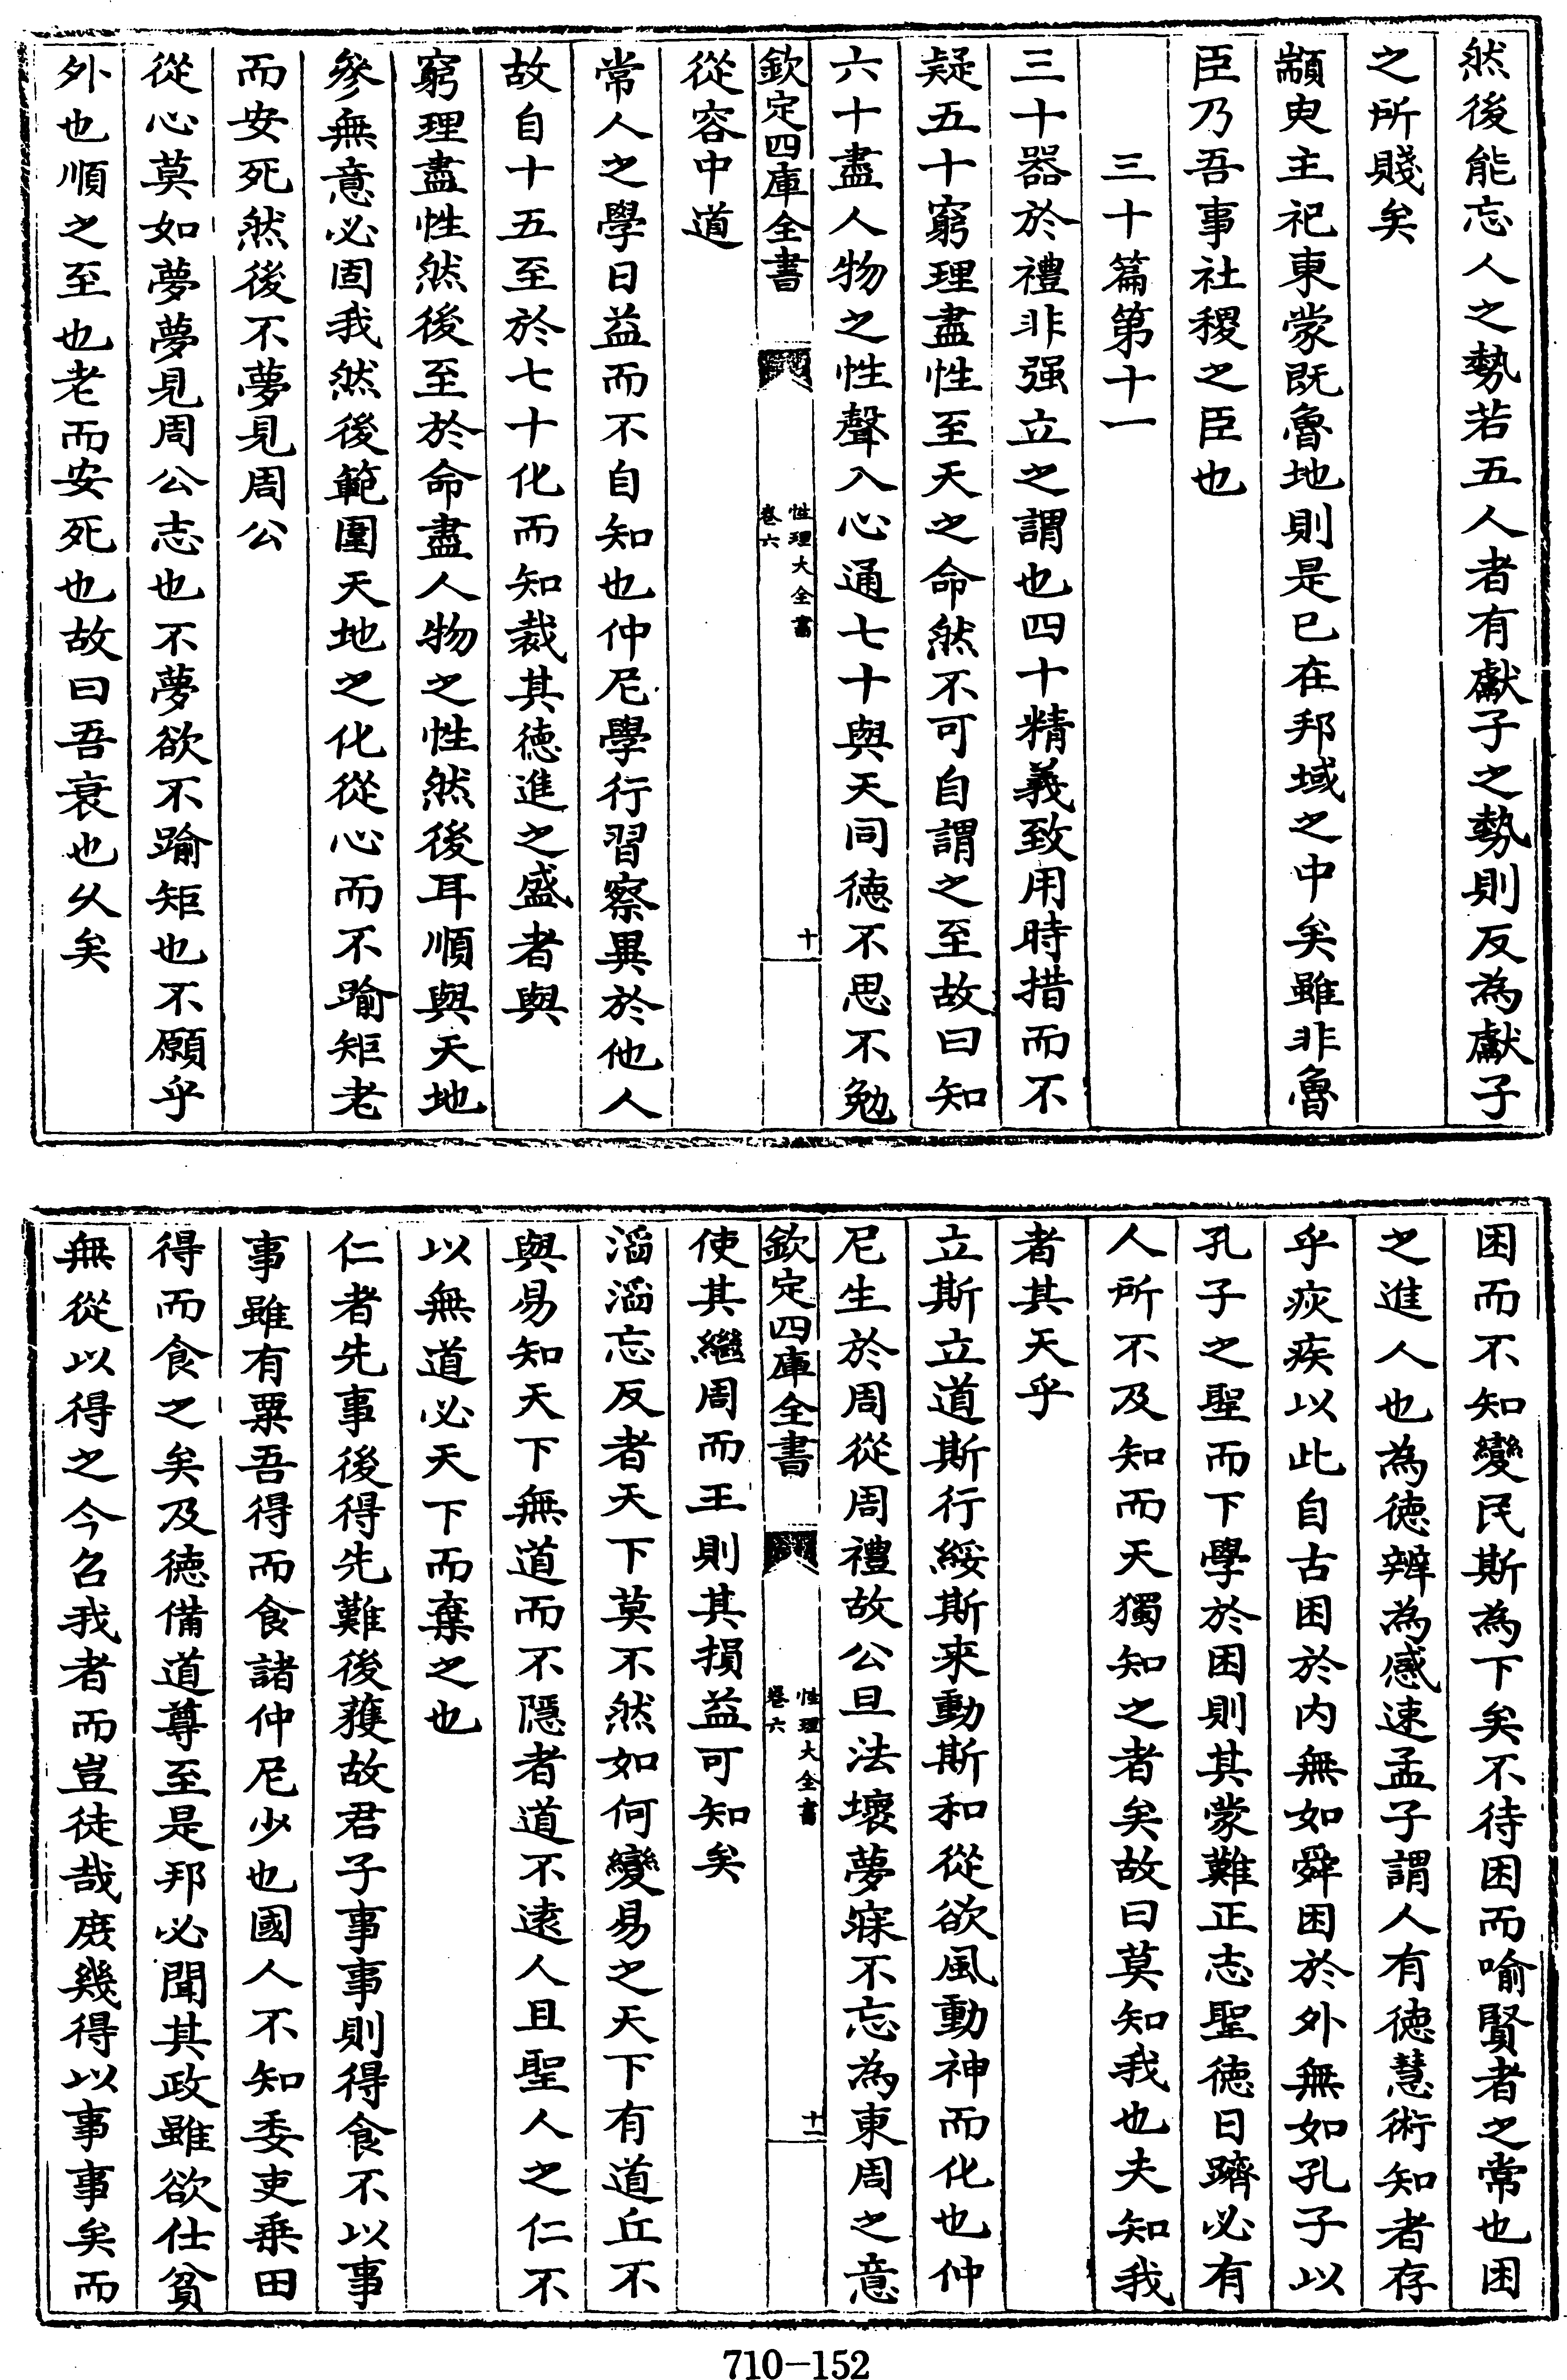 然後能忘人之勢若五人者有獻子之勢則反為獻子
之所賤矣
顓臾主祀東蒙既魯地則是已在邦域之中矣雖非魯
臣乃吾事社稷之臣也
三十篇第十一
三十器於禮非强立之謂也四十精義致用時措而不
疑五十窮理盡性至天之命然不可自謂之至故曰知
六十盡人物之性聲入心通七十與天同德不思不勉
欽定四庫全書
性理大全書
卷六
十
從容中道
常人之學日益而不自知也仲尼學行習察異於他人
故自十五至於七十化而知裁其德進之盛者與
窮理盡性然後至於命盡人物之性然後耳順與天地
參無意必固我然後範圍天地之化從心而不踰矩老
而安死然後不夢見周公
從心莫如夢夢見周公志也不夢欲不踰矩也不願乎
外也順之至也老而安死也故曰吾衰也久矣
困而不知變民斯為下矣不待困而喻賢者之常也困
之進人也為德辨為感速孟子謂人有德慧術知者存
乎疢疾以此自古困於内無如舜困於外無如孔子以
孔子之聖而下學於困則其蒙難正志聖德日躋必有
人所不及知而天獨知之者矣故曰莫知我也夫知我
者其天乎
立斯立道斯行綏斯来動斯和從欲風動神而化也仲
尼生於周從周禮故公旦法壞夢寐不忘為東周之意
欽定四庫全書
性理大全書
卷六
十一
使其繼周而王則其損益可知矣
滔滔忘反者天下莫不然如何變易之天下有道丘不
與易知天下無道而不隱者道不逺人且聖人之仁不
以無道必天下而棄之也
仁者先事後得先難後獲故君子事事則得食不以事
事雖有粟吾得而食諸仲尼少也國人不知委吏乗田
得而食之矣及德備道尊至是邦必聞其政雖欲仕貧
無從以得之今召我者而豈徒哉庶幾得以事事矣而
710-152